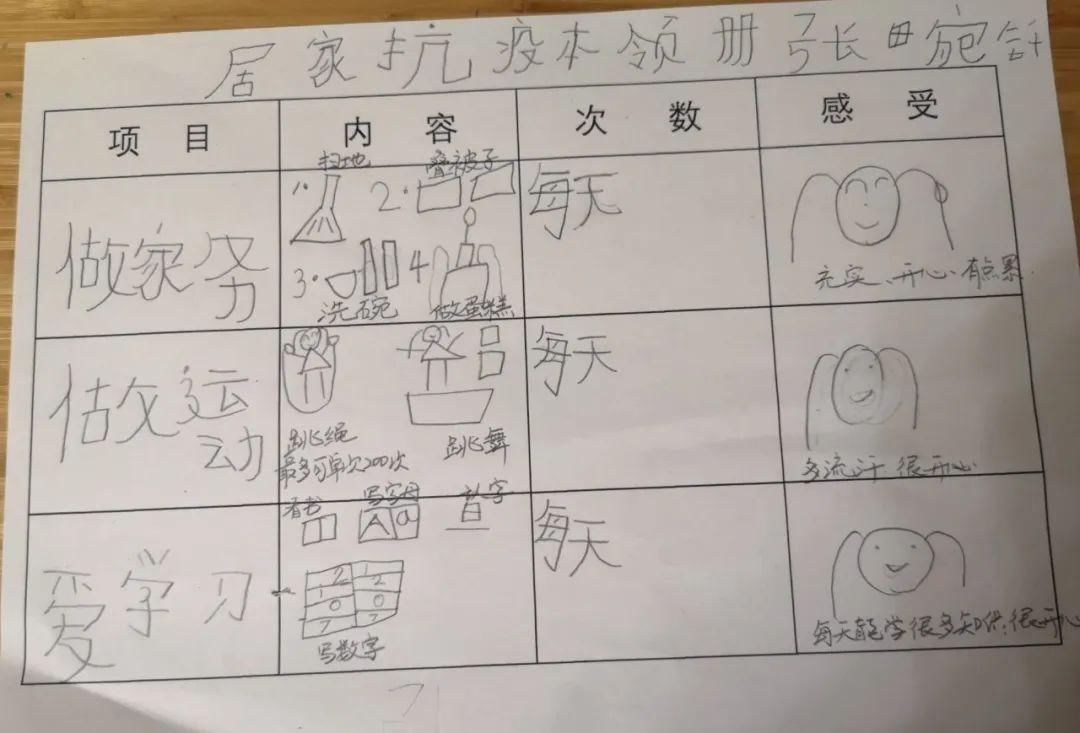 居家抗疫本领册 张毌宛舒
项目 内容 次数 感受
做家务
扫地 叠被子
1. 2.
3. 4
洗碗 做蛋糕
每天
充实、开心、有点累.
做运动
跳绳 跳舞
最多可单次200次
每天
多流汗 很开心
爱学习
看书 写字母 写字
A a
1 2 1 2
0 0
7 7
写数字
每天
每天能学很多知识,很开心